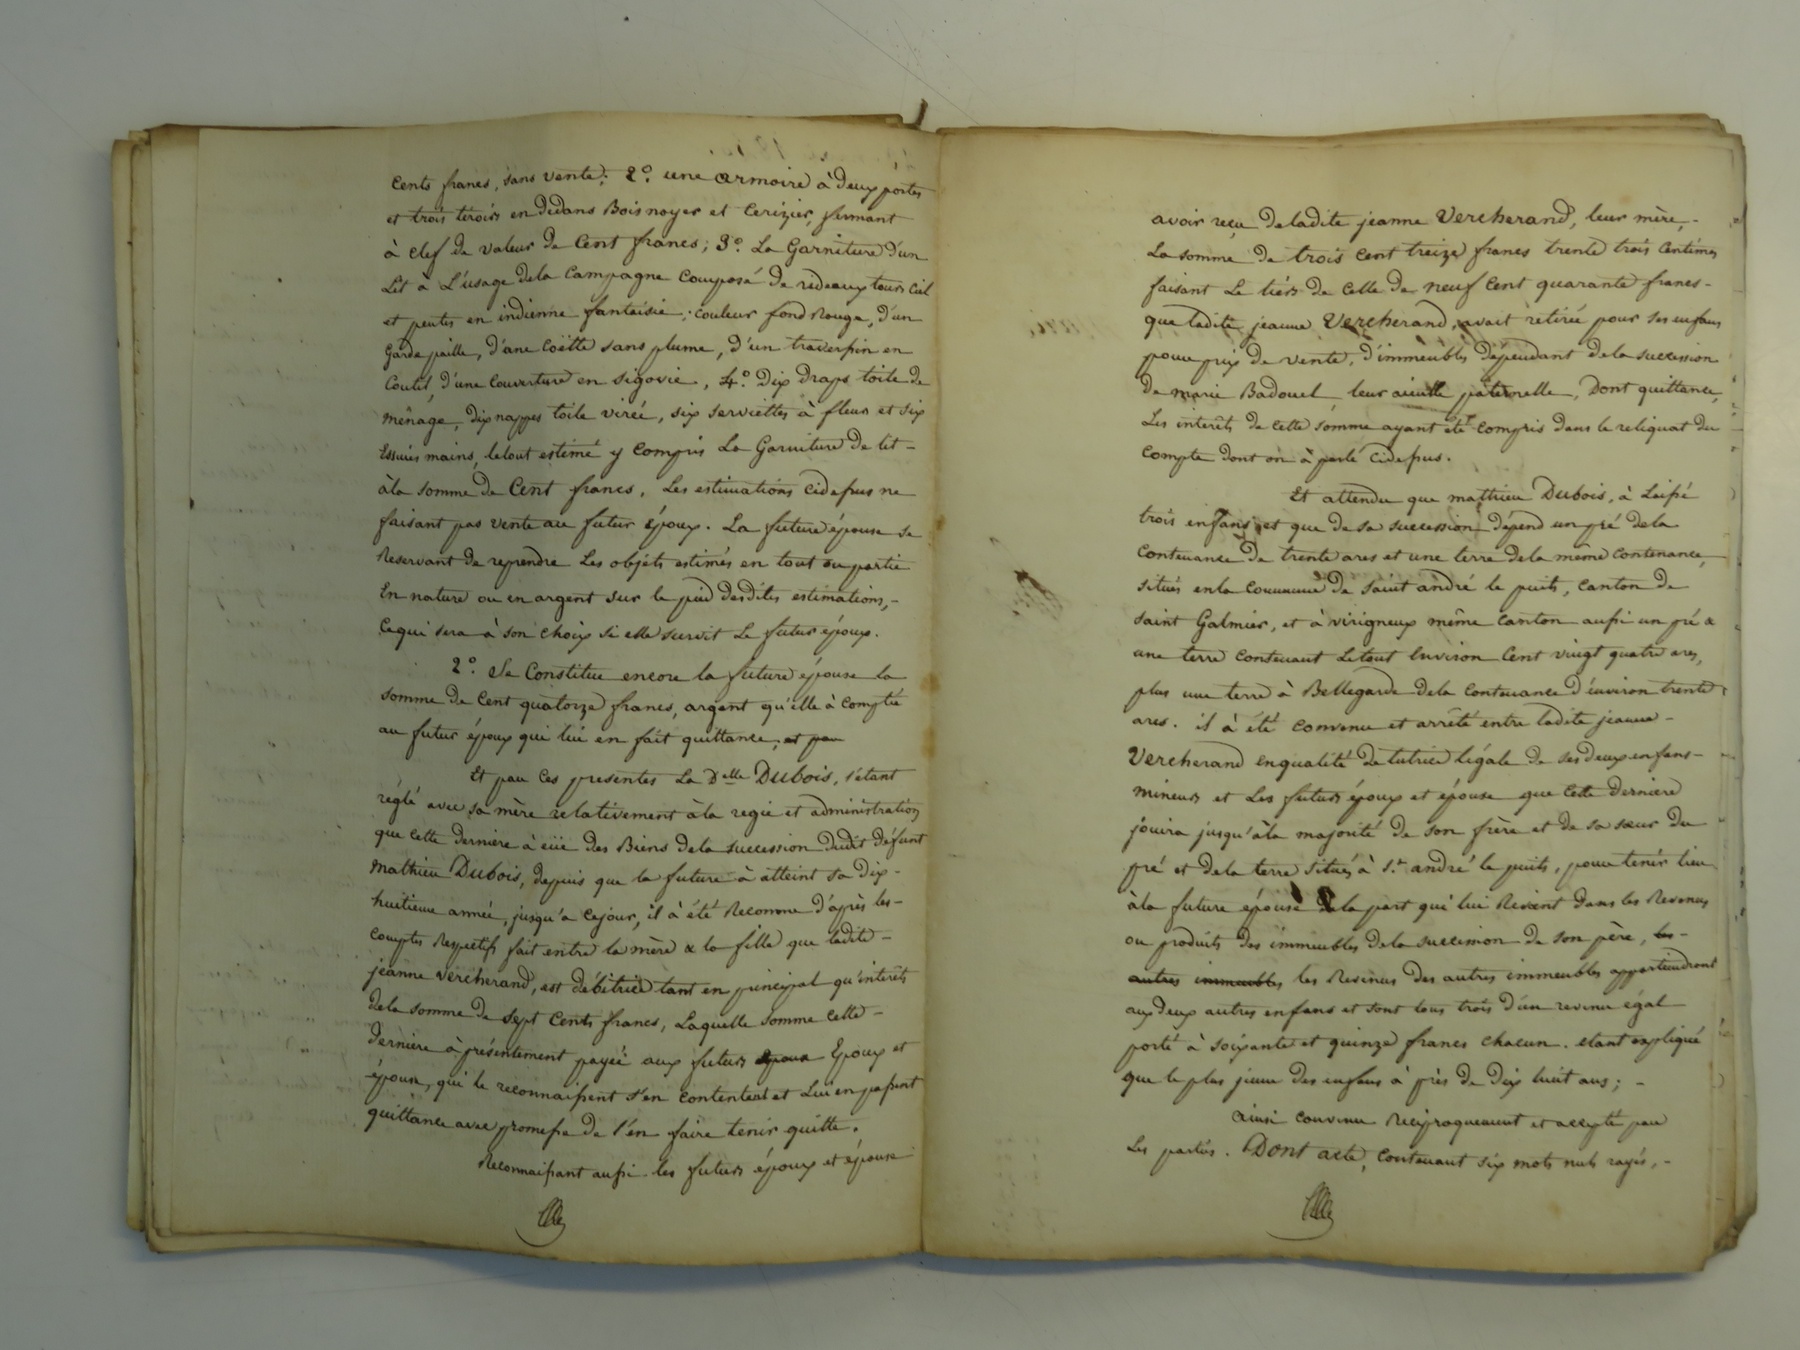 cents francs, sans vente; 2.° une armoire à deux portes
et trois tiroirs en dedans Bois noyer et Cerizier, fermant
à clef de valeur de Cent francs; 3.° La Garniture d'un
Lit à L'usage dela Campagne Composé de rideaux tours Ciel
et pentes en indienne fantaisie, couleur fond Rouge, d'un
Garde paille, d'une Coëtte sans plume, d'un traverpin en
Coutil, d'une Couverture en Segovie, 4.° Dix Draps toile de
ménage, dix nappes toile virée, six serviettes à fleurs et six
Essuies mains, letout estimé y Compris La Garniture de lit -
àla somme de Cent francs. Les estimations cidessus ne
faisant pas vente au futur époux. La future épouse se
Reservant de reprendre Les objets estimés en tout ou partie
En nature ou en argent sur le pied desdites estimations, -
Cequi sera à son choix si elle survit Le futur époux.
2.° Se Constitue encore la future épouse la
somme de Cent quatorze francs, argent qu'elle à Compté
au futur époux qui lui en fait quittance, et par
Et par Ces presentes La Delle Dubois, s'étant
réglé avec sa mère relativement àla regie et administration
que cette derniere à eüe des Biens dela succession dudit défunt
Mathieu Dubois, depuis que la future à atteint sa Dix -
huitieme année, jusqu'a cejour, il à été Reconnu d'après les -
Comptes Respectifs fait entre la mère & la fille que ladite -
jeanne Vercherand, est débitrice tant en principal qu'interêts
dela somme de sept Cents francs, Laquelle somme Cette -
derniere à présentement payée aux futurs Epoux Epoux et
épouse, qui le reconnaissent s'en contentent et Lui en passent
quittance avec promesse de l'en faire tenir quitte.
Reconnaissant aussi les futurs époux et épouse
avoir reçu deladite jeanne Vercherand, leur mère, -
La somme de trois Cent treize francs trente trois Centimes
faisant Le tiers de Celle de neuf Cent quarante francs -
que ladite jeanne Vercherand, avait retirée pour ses enfans
pour prix de vente, d'immeubles dépendant dela succession
de marie Badouel leur aieulle paternelle, Dont quittance,
Les interêts de Cette somme ayant été Compris dans le reliquat du
Compte dont on à parlé Cidessus.
Et attendu que mathieu Dubois, à Laissé
trois enfans, et que de sa succession dépend un pré dela
Contenance de trente ares et une terre dela même Contenance,
situés enla Commune de Saint andré le puits, Canton de
saint Galmier, et à virigneux même Canton aussi un pré &
une terre Contenant Letout Environ Cent vingt quatre ares,
plus une terre à Bellegarde dela Contenance d'environ trente
ares. il à été convenu et arrêté entre ladite jeanne -
Vercherand enqualité de tutrice légale de ses deux enfans -
mineurs et Les futurs époux et épouse que Cette Derniere
jouira jusqu'àla majorité de son frère et de sa sœur du
pré et dela terre situés à St. andré le puits, pour tenir lieu
àla future épouse dela part qui lui Revient dans les Revenus
ou produits des immeubles dela succession de son père, les -
autres immeubles les Revenus des autres immeubles appartiendront
aux deux autres enfans et sont tous trois d'un revenu égal
porté à soixante et quinze francs Chacun. etant expliqué
que le plus jeune des enfans à près de Dix huit ans; -
Ainsi Convenu Reciproquement et accepté par
Les parties. Dont acte, Contenant six mots nuls rayés, -